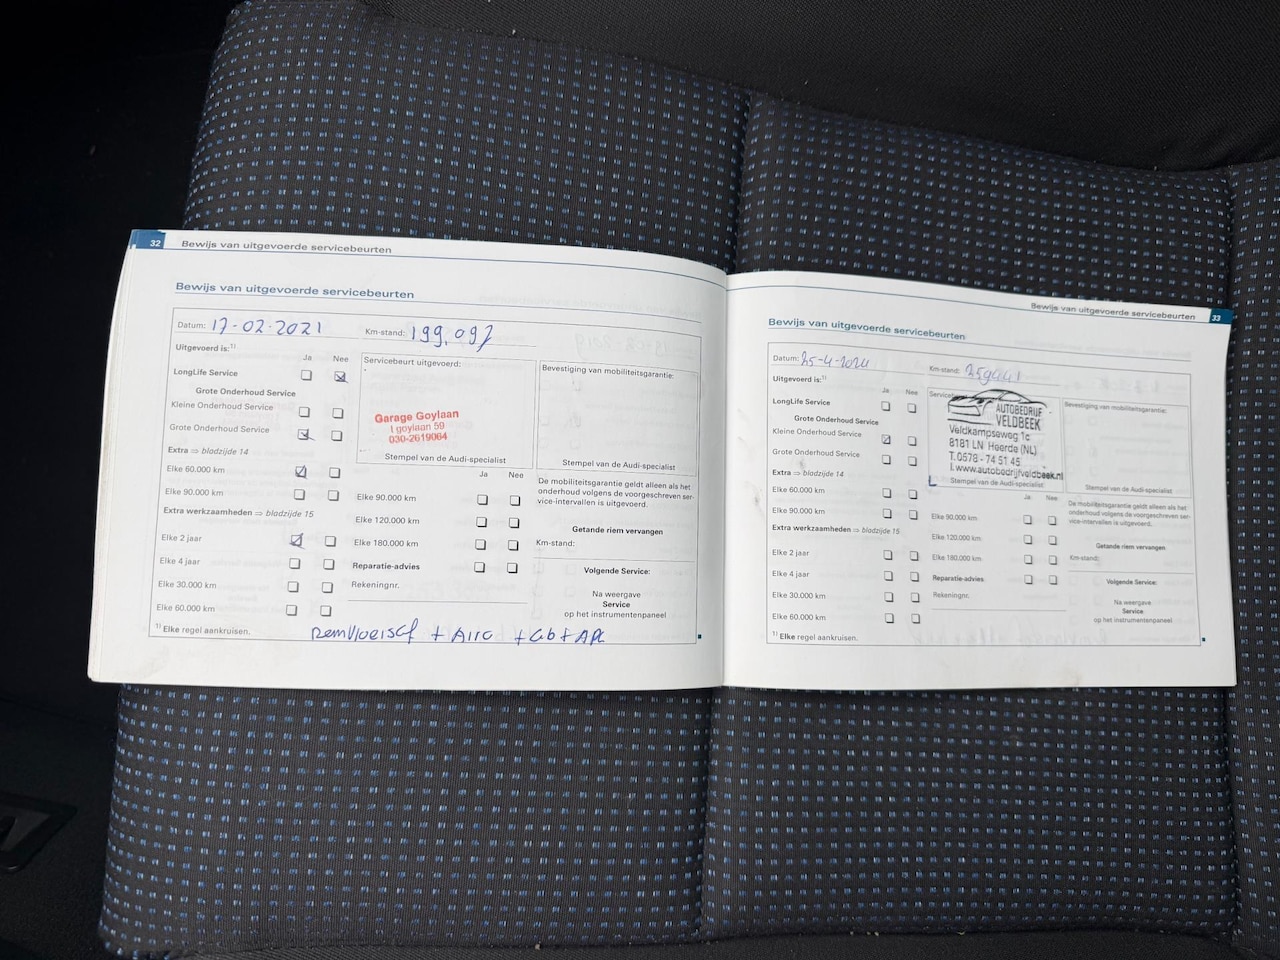 32 Bewijs van uitgevoerde servicebeurten
Bewijs van uitgevoerde servicebeurten
Datum: 17-02-2021 Km-stand: 199.097
Uitgevoerd is:1)
Ja Nee
Servicebeurt uitgevoerd:
Bevestiging van mobiliteitsgarantie:
LongLife Service
Grote Onderhoud Service
Kleine Onderhoud Service
Grote Onderhoud Service
Garage Goylaan
t goylaan 59
030-2619064
Stempel van de Audi-specialist
Stempel van de Audi-specialist
Extra ⇒ bladzijde 14
Elke 60.000 km
Elke 90.000 km
Extra werkzaamheden ⇒ bladzijde 15
Elke 2 jaar
Elke 4 jaar
Elke 30.000 km
Elke 60.000 km
1) Elke regel aankruisen.
Ja Nee
Elke 90.000 km
Elke 120.000 km
Elke 180.000 km
Reparatie-advies
Rekeningnr.
De mobiliteitsgarantie geldt alleen als het
onderhoud volgens de voorgeschreven ser-
vice-intervallen is uitgevoerd.
Getande riem vervangen
Km-stand:
Volgende Service:
Na weergave
Service
op het instrumentenpaneel
Remvloeistof + Airc
Bewijs van uitgevoerde servicebeurten 33
Bewijs van uitgevoerde servicebeurten
Datum: 25-4-2024 Km-stand: 259441
Uitgevoerd is:1)
Ja Nee
Bevestiging van mobiliteitsgarantie:
LongLife Service
Grote Onderhoud Service
Kleine Onderhoud Service
Grote Onderhoud Service
AUTOBEDRIJF
VELDBEEK
Veldkampseweg 1c
8181 LN Heerde (NL)
T.0578 - 74 51 45
I.www.autobedrijfveldbeek.nl
Stempel van de Audi-specialist
Stempel van de Audi-specialist
Extra ⇒ bladzijde 14
Elke 60.000 km
Elke 90.000 km
Extra werkzaamheden ⇒ bladzijde 15
Elke 2 jaar
Elke 4 jaar
Elke 30.000 km
Elke 60.000 km
1) Elke regel aankruisen.
Ja Nee
Elke 90.000 km
Elke 120.000 km
Elke 180.000 km
Reparatie-advies
Rekeningnr.
De mobiliteitsgarantie geldt alleen als het
onderhoud volgens de voorgeschreven ser-
vice-intervallen is uitgevoerd.
Getande riem vervangen
Km-stand:
Volgende Service:
Na weergave
Service
op het instrumentenpaneel